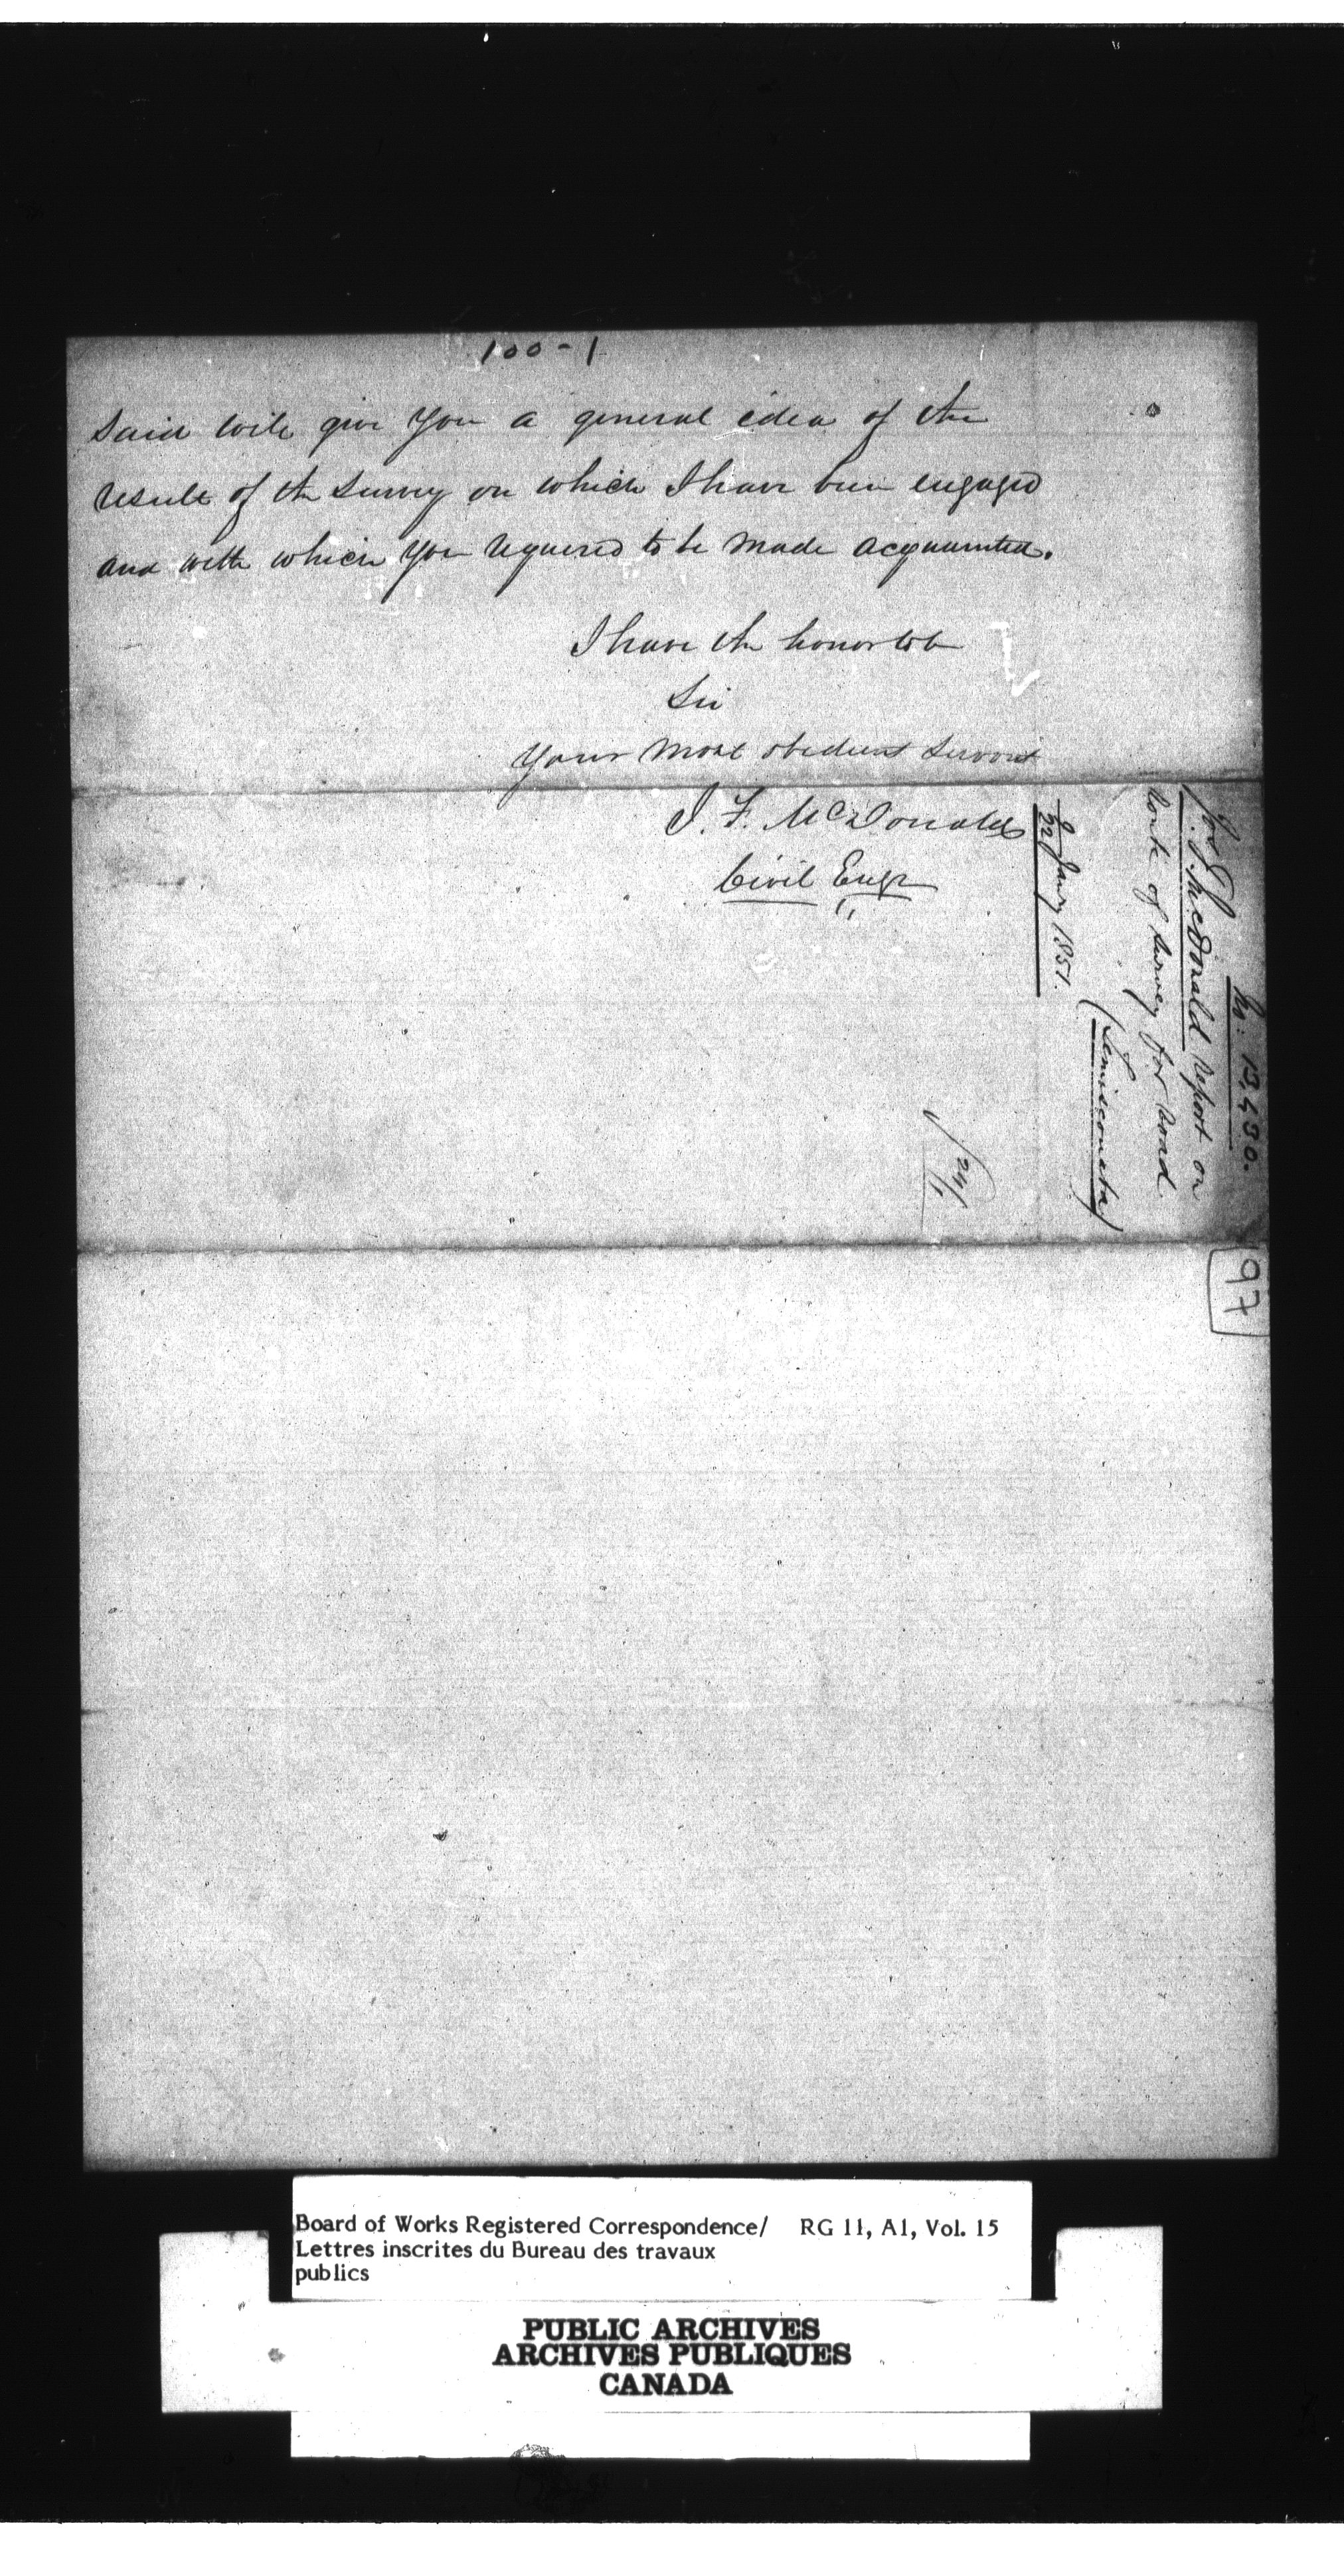 100-1
said will give you a general idea of the
result of the survey on which I have been engaged
and with which you required to be made acquainted.
I have the honor to be
Sir
Your most obedient servant
J. F. McDonald
Civil Engr
No: 13,430.
McDonald report on
route of survey for road
(Temisconata)
22 Jany 1851.
24/1
97
Board of Works Registered Correspondence/ RG 11, A1, Vol. 15
Lettres inscrites du Bureau des travaux
publics
PUBLIC ARCHIVES
ARCHIVES PUBLIQUES
CANADA